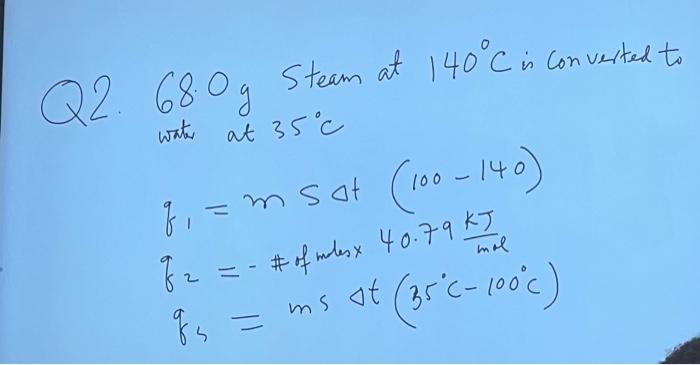 Q2. 68.0g Steam at 140°C is Converted to
water at 35°C
q1 = m s Δt (100 - 140)
q2 = - # of moles x 40.79 KJ/mol
q3 = ms Δt (35°C - 100°C)